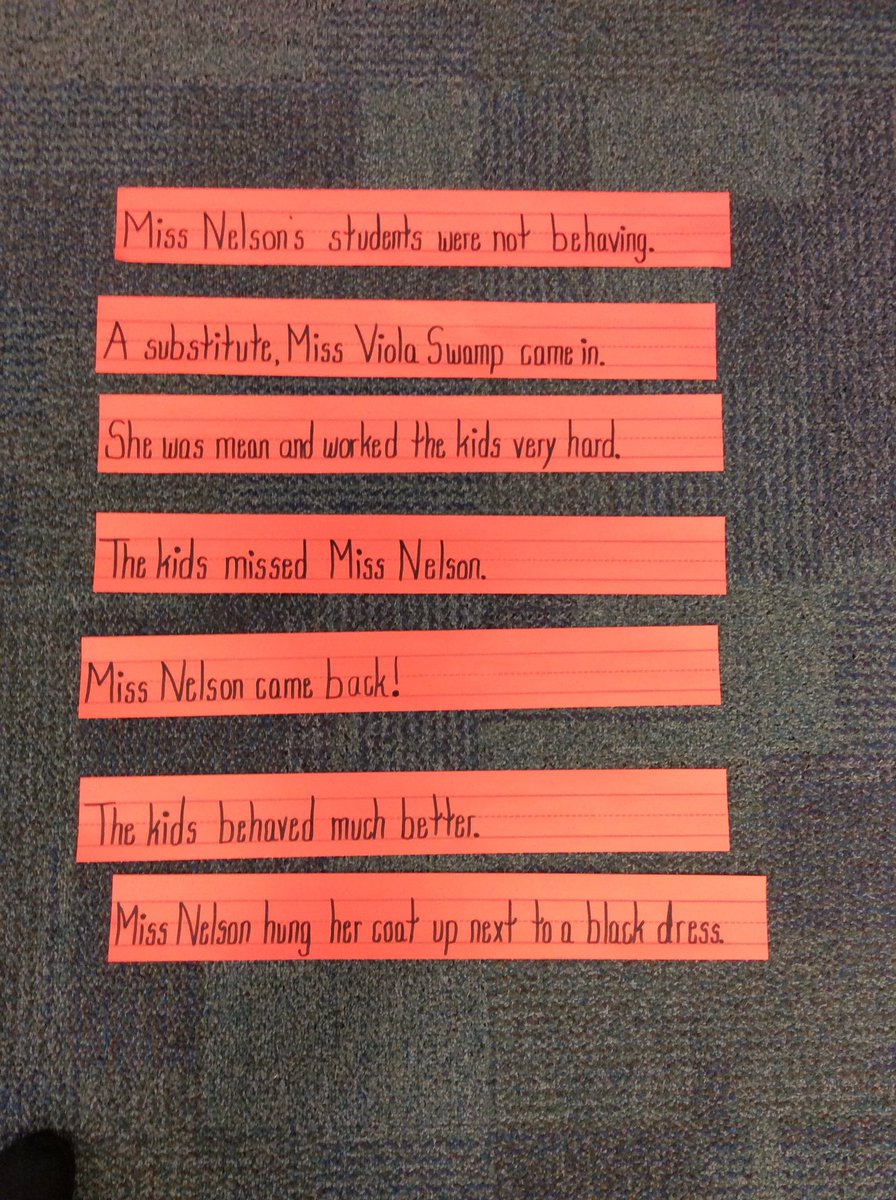 Miss Nelson's students were not behaving.
A substitute, Miss Viola Swamp came in.
She was mean and worked the kids very hard.
The kids missed Miss Nelson.
Miss Nelson came back!
The kids behaved much better.
Miss Nelson hung her coat up next to a black dress.